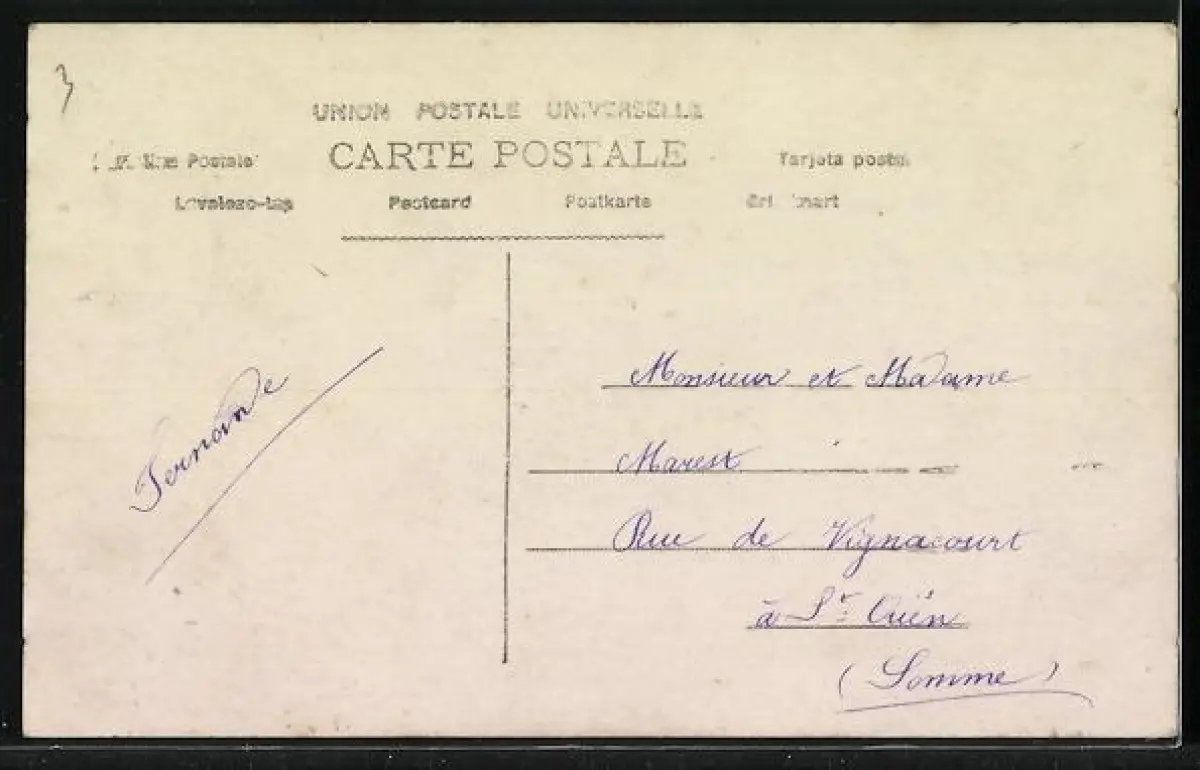 3
UNION POSTALE UNIVERSELLE
CARTE POSTALE
Postale Tarjeta
Levelezo-Lap Postcard Postkarte
Fernande
Monsieur et Madame
Marest
Rue de Vignacourt
à St Ouën
(Somme)